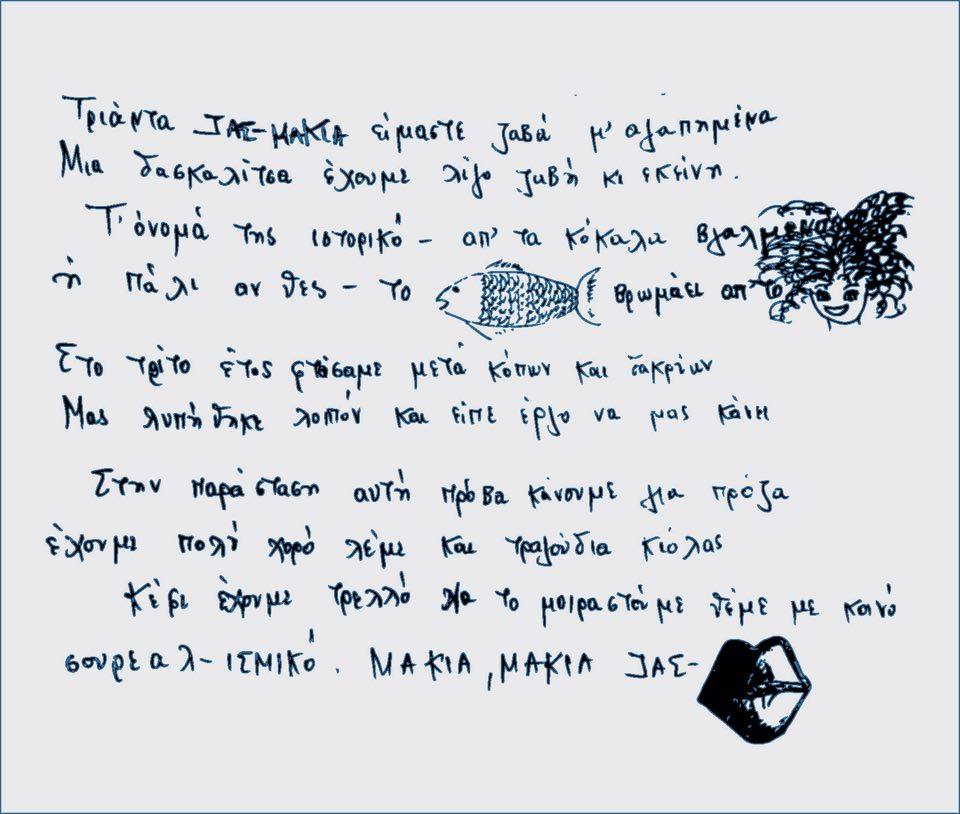 Τριάντα ΙΑΣ-ΜΑΚΙΑ είμαστε ζαβά μ' αγαπημένα
Μια δασκαλίτσα έχουμε λίγο ζαβή κι εκείνη.
Τ' όνομά της ιστορικό - απ' τα κόκαλα βγαλμένο
ή πάλι αν θες - το βρωμάει απ' το
Στο τρίτο έτος φτάσαμε μετά κόπων και δακρίων
Μας λυπήθηκε λοπόν και είπε έργο να μας κάνη
Στην παράσταση αυτή πρόβα κάνουμε για πρόζα
έχουμε πολύ χορό λέμε και τραγούδια κιόλας
Κέφι έχουμε τρελλό να το μοιραστούμε θέμε με κοινό
σουρεαλ-ΙΣΜΙΚΟ. ΜΑΚΙΑ, ΜΑΚΙΑ ΙΑΣ-